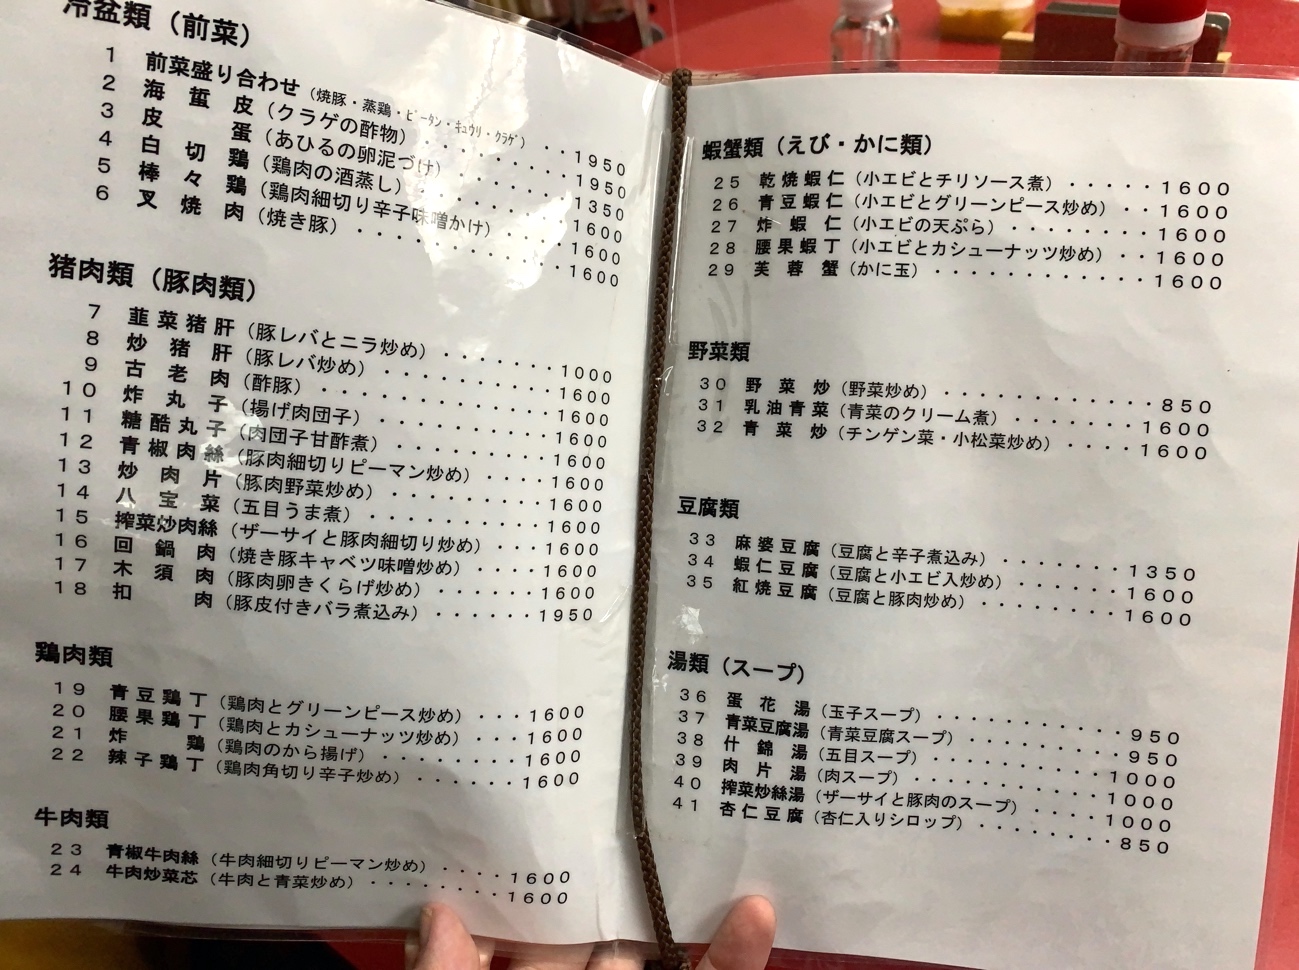 冷盆類（前菜）
1 前菜盛り合わせ（焼豚・蒸鶏・ピータン・キュウリ・クラゲ）・・1950
2 海蜇皮（クラゲの酢物）・・・・・・・・1950
3 皮蛋（あひるの卵泥づけ）・・・・・・1350
4 白切鶏（鶏肉の酒蒸し）・・・・・・・・1600
5 棒々鶏（鶏肉細切り辛子味噌かけ）・・・・1600
6 叉焼肉（焼き豚）・・・・・・・・・・・1600
猪肉類（豚肉類）
7 韮菜猪肝（豚レバとニラ炒め）・・・・・・・1000
8 炒猪肝（豚レバ炒め）・・・・・・・・・1600
9 古老肉（酢豚）・・・・・・・・・・・・1600
10 炸丸子（揚げ肉団子）・・・・・・・・・1600
11 糖酷丸子（肉団子甘酢煮）・・・・・・・・1600
12 青椒肉絲（豚肉細切りピーマン炒め）・・・・1600
13 炒肉片（豚肉野菜炒め）・・・・・・・・1600
14 八宝菜（五目うま煮）・・・・・・・・・1600
15 搾菜炒肉絲（ザーサイと豚肉細切り炒め）・・・1600
16 回鍋肉（焼き豚キャベツ味噌炒め）・・・・・1600
17 木須肉（豚肉卵きくらげ炒め）・・・・・・1600
18 扣肉（豚皮付きバラ煮込み）・・・・・・1950
鶏肉類
19 青豆鶏丁（鶏肉とグリーンピース炒め）・・・1600
20 腰果鶏丁（鶏肉とカシューナッツ炒め）・・・1600
21 炸鶏（鶏肉のから揚げ）・・・・・・・・1600
22 辣子鶏丁（鶏肉角切り辛子炒め）・・・・・・1600
牛肉類
23 青椒牛肉絲（牛肉細切りピーマン炒め）・・・・1600
24 牛肉炒菜芯（牛肉と青菜炒め）・・・・・・・1600
蝦蟹類（えび・かに類）
25 乾焼蝦仁（小エビとチリソース煮）・・・・・1600
26 青豆蝦仁（小エビとグリーンピース炒め）・・1600
27 炸蝦仁（小エビの天ぷら）・・・・・・・・1600
28 腰果蝦丁（小エビとカシューナッツ炒め）・・1600
29 芙蓉蟹（かに玉）・・・・・・・・・・・1600
野菜類
30 野菜炒（野菜炒め）・・・・・・・・・・・850
31 乳油青菜（青菜のクリーム煮）・・・・・・・1600
32 青菜炒（チンゲン菜・小松菜炒め）・・・・1600
豆腐類
33 麻婆豆腐（豆腐と辛子煮込み）・・・・・・・1350
34 蝦仁豆腐（豆腐と小エビ入炒め）・・・・・・1600
35 紅焼豆腐（豆腐と豚肉炒め）・・・・・・・・1600
湯類（スープ）
36 蛋花湯（玉子スープ）・・・・・・・・・・950
37 青菜豆腐湯（青菜豆腐スープ）・・・・・・・・950
38 什錦湯（五目スープ）・・・・・・・・・1000
39 肉片湯（肉スープ）・・・・・・・・・・1000
40 搾菜炒絲湯（ザーサイと豚肉のスープ）・・・・1000
41 杏仁豆腐（杏仁入りシロップ）・・・・・・・850